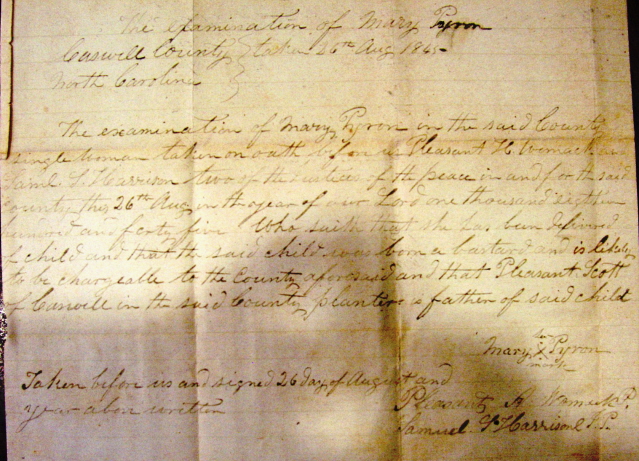 The examination of Mary Pyron
Caswell County } taken 26th Aug 1845
North Carolina }
The examination of Mary Pyron in the said County
single woman taken on oath before us Pleasant H. Womack and
Saml. S. Harrison two of the justices of the peace in and for the said
County this 26th Aug in the year of our Lord one thousand eighteen
hundred and forty five. Who saith that she has been delivered
of child and that the said child was born a bastard and is likely
to be chargeable to the County aforesaid and that Pleasant Scott
of Caswell in the said County planter is father of said child
her
Mary X Pyron
mark
Taken before us and signed 26 day of August and
year abov written
Pleasant H. Womack J.P.
Samuel S Harrison J.P.